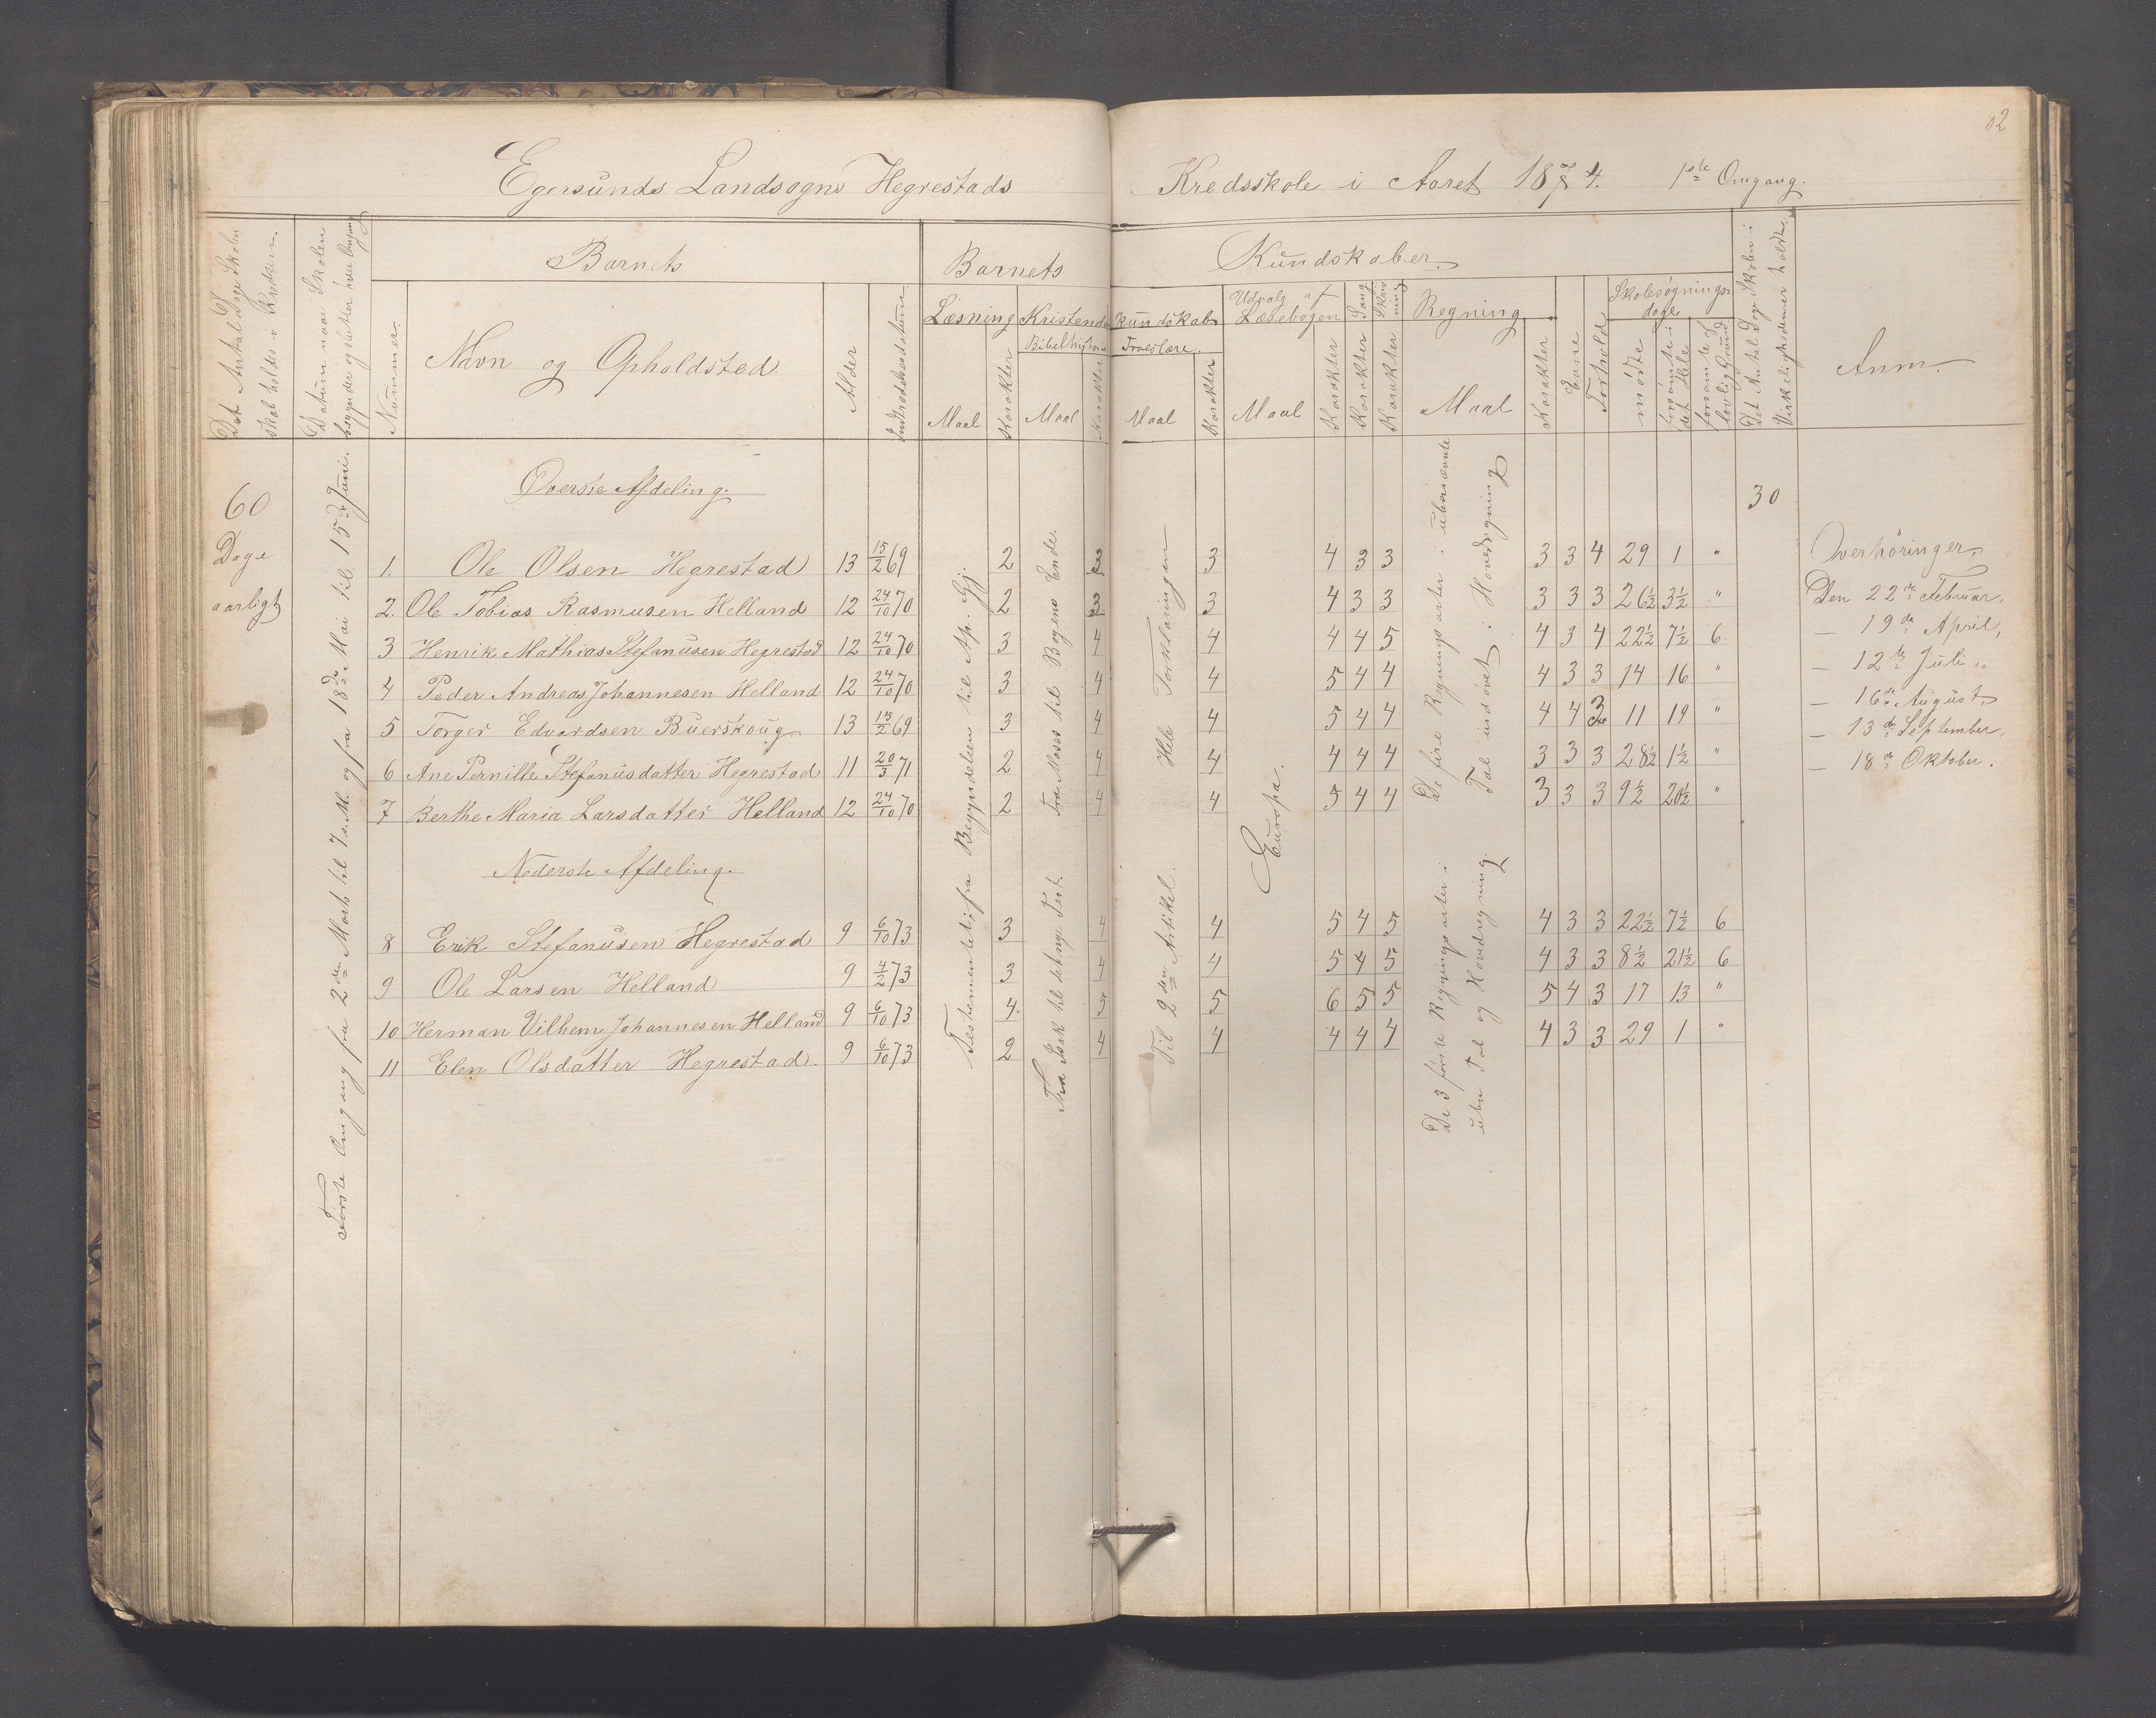 02
Egersunds Landsogns Hegrestads Kredsskole i Aaret 1874. 1ste Omgang.
Det Antal Dage Skolen skal holdes i Kredsen.
Datum naar Skolen begynder og slutter hver Omgang
Barnets
Barnets Kundskaber.
Nummer.
Navn og Opholdsted.
Alder
Indtrædelsesdatum
Læsning
Maal
Karakter
Kristendomskundskab
Bibelhistorie
Maal
Karakter
Troeslære.
Maal
Karakter
Udvalg af Læsebogen
Maal
Karakter
Sang
Karakter
Skrivning
Karakter
Regning
Maal
Karakter
Evne
Forhold
Skolesøgningsdage
mødte
forsømte i det Hele
forsømte af lovlig Grund
Det Antal Dage Skolen i Virkeligheden holdt.
Anm.
60 Dage aarligt
Første Omgang fra 2den Marts til 7 s. M. og fra 18de Mai til 15de Juni.
Øverste Afdeling.
30
1. Ole Olsen Hegrestad 13 15/2 69 2 3 3 4 3 3 3 3 4 29 1 "
2. Ole Tobias Rasmusen Helland 12 24/10 70 2 3 3 4 3 3 3 3 3 26½ 3½ "
3 Henrik Mathias Stefanusen Hegrestad 12 24/10 70 3 4 4 4 4 5 4 3 4 22½ 7½ 6.
4 Peder Andreas Johannesen Helland 12 24/10 70 3 4 4 5 4 4 4 3 3 14 16 "
5 Torger Edvardsen Buerskoug 13 15/2 69 3 4 4 5 4 4 4 4 3 11 19 "
6 Ane Pernille Stefanusdatter Hegrestad 11 20/3 71 2 4 4 4 4 4 3 3 3 28½ 1½ "
7 Berthe Maria Larsdatter Helland 12 24/10 70 2 4 4 5 4 4 3 3 3 9½ 20½ "
Nederste Afdeling.
8 Erik Stefanusen Hegrestad 9 6/10 73 3 4 4 5 4 5 4 3 3 22½ 7½ 6
9 Ole Larsen Helland 9 4/2 73 3 4 4 5 4 5 4 3 3 8½ 21½ 6
10 Herman Vilhem Johannesen Helland 9 6/10 73 4. 5 5 6 5 5 5 4 3 17 13 "
11 Elen Olsdatter Hegrestad. 9 6/10 73 2 4 4 4 4 4 4 3 3 29 1 "
Testamentet; fra Begyndelsen til Ap. Gj.
Fra Moses til Bogens Ende.
Fra Isak til det nye Test.
Hele Forklaringen
Til 2den Artikel.
Europa.
De fire Regningsarter i ubenævnte Tal indøvet i Hovedregning
De 3 første Regningsarter i ubn Tal og Hovedregning.
Overhøringer.
Den 22de Februar,
— 19de April,
— 12te Juli "
— 16de August,
— 13de September,
— 18de Oktober.